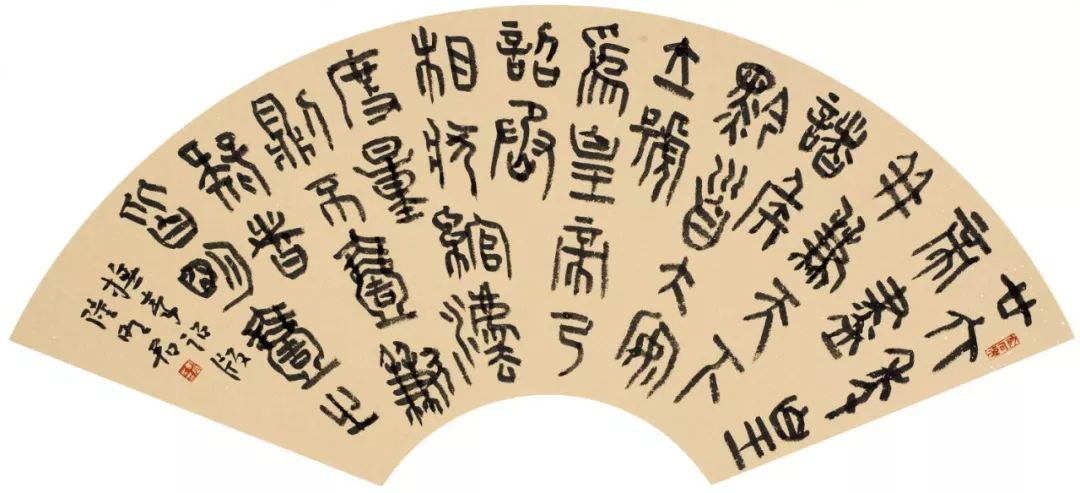 廿六年皇
帝盡
并兼天下
諸侯
黔首大安
立號
爲皇帝乃
詔丞
相狀綰灋
度量
則不壹歉
疑者
皆明壹之
擬秦詔版
陸明君